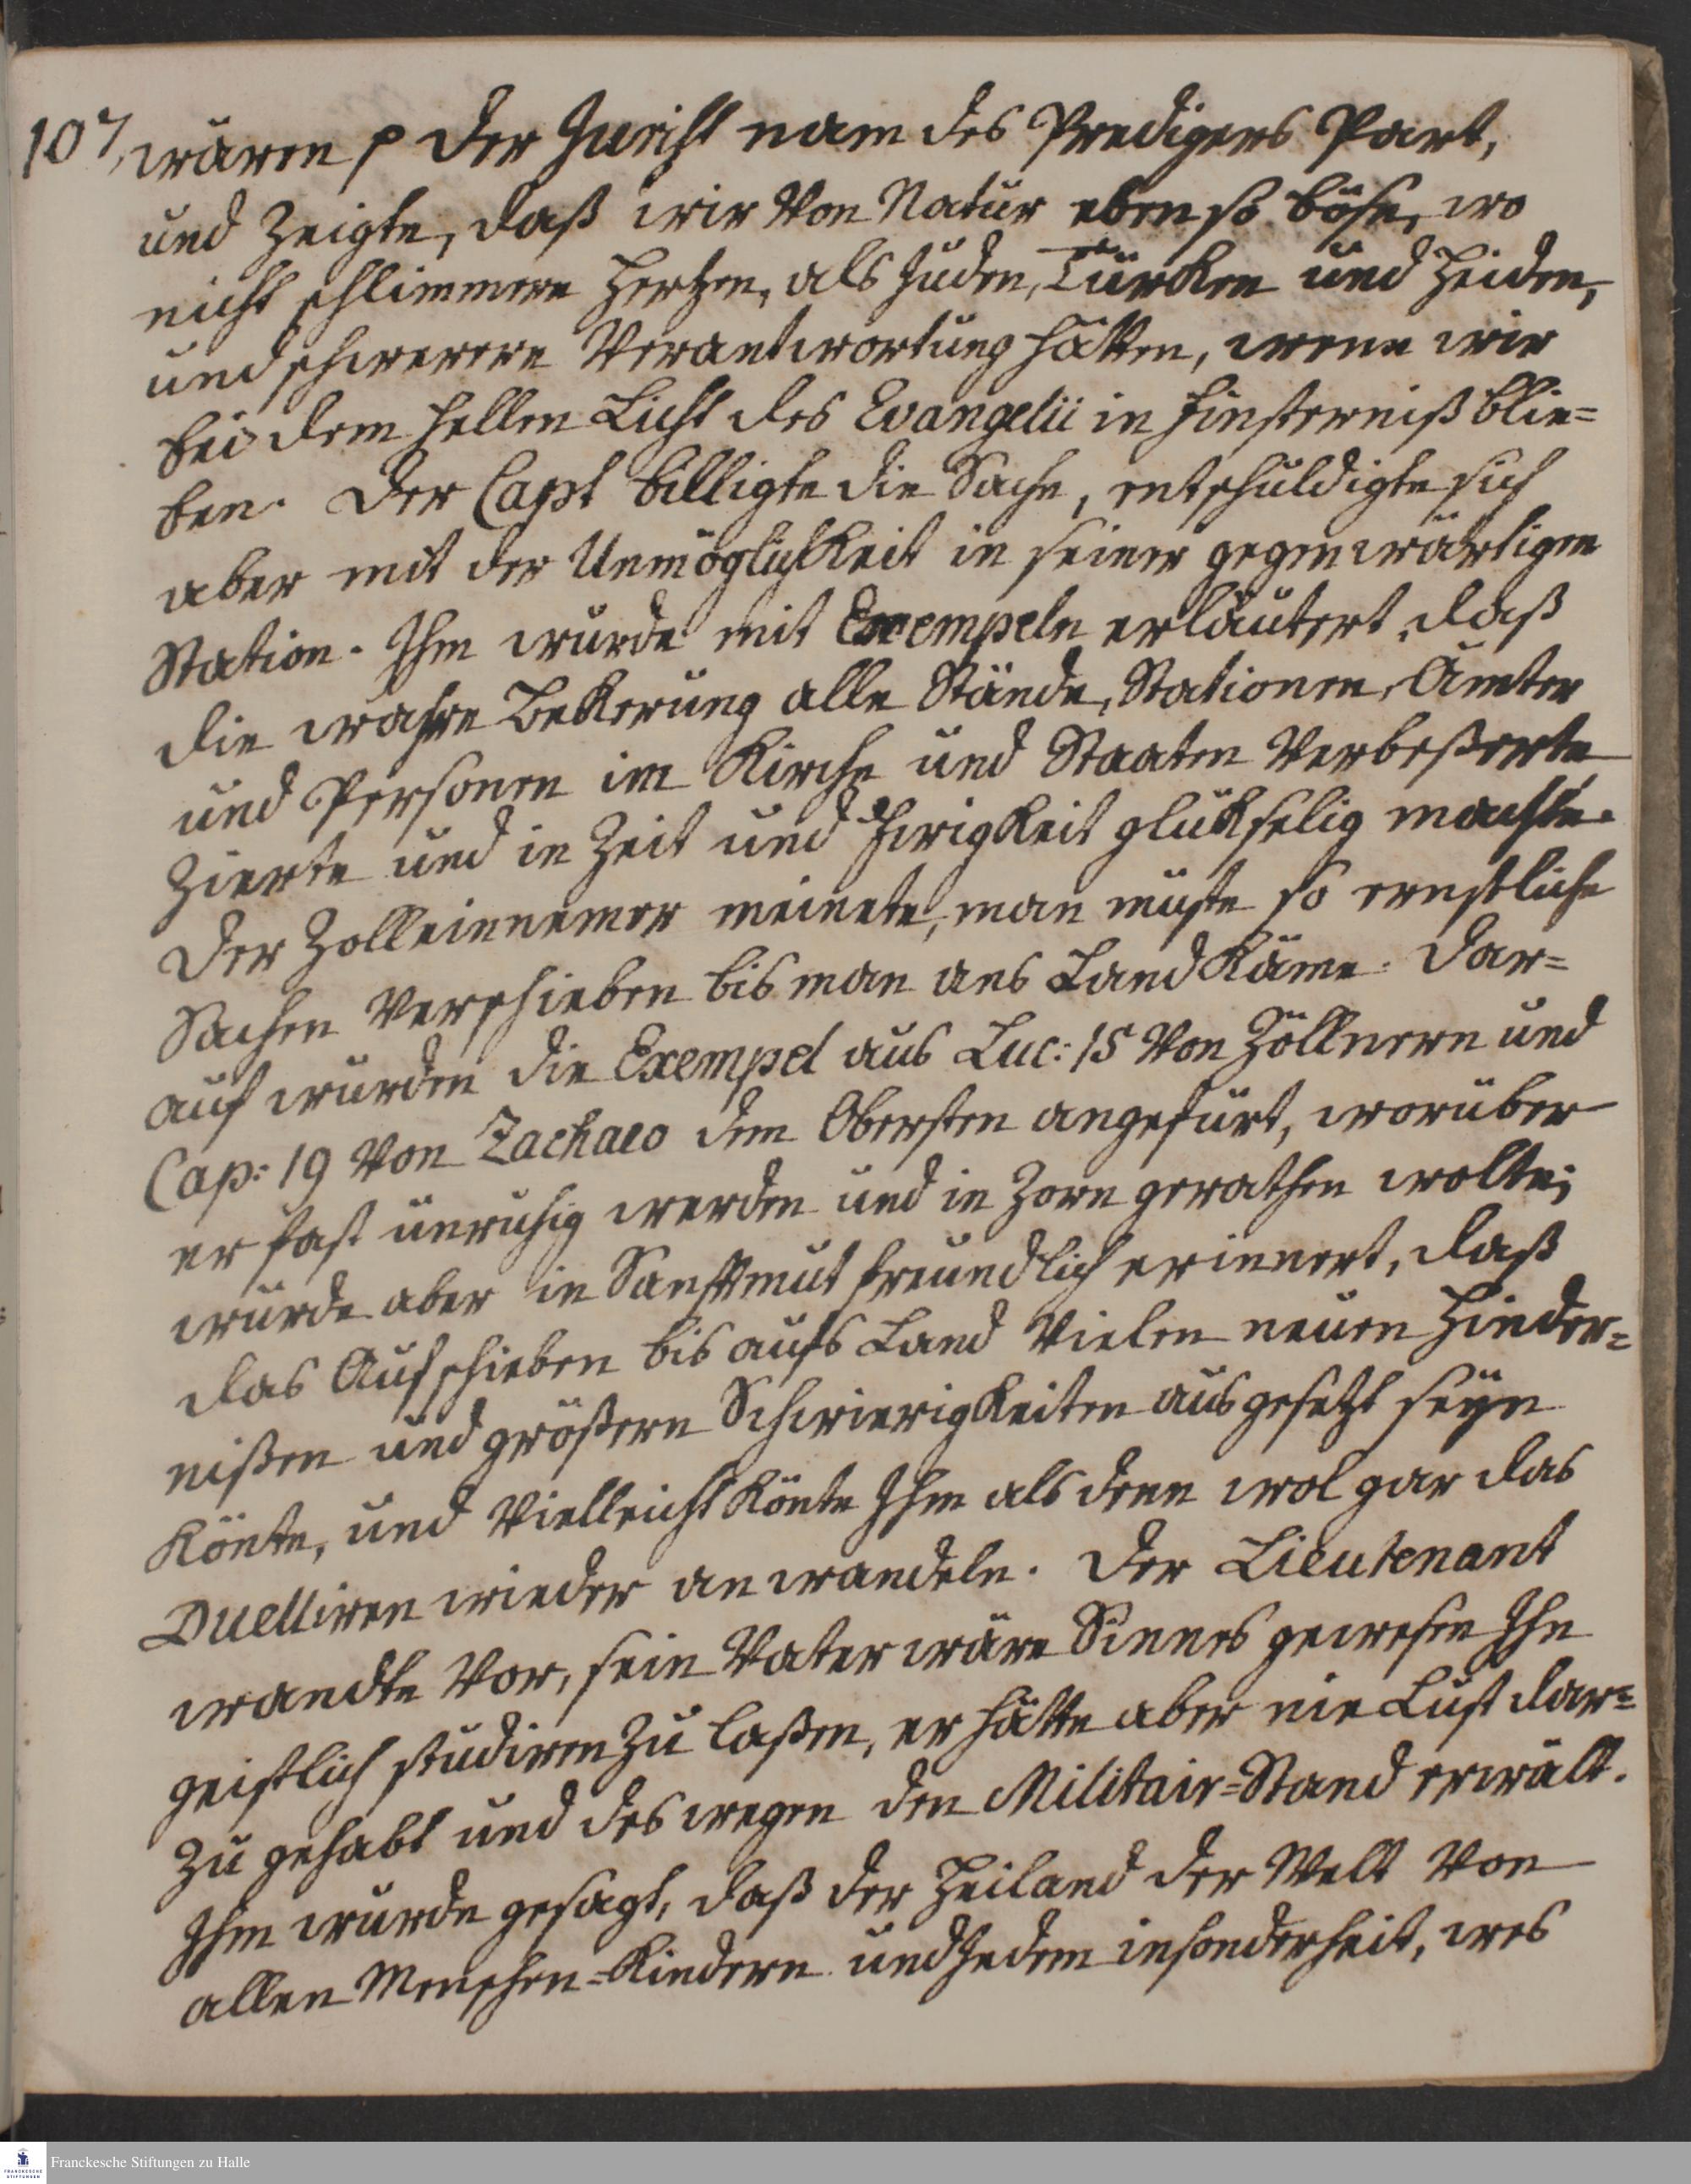 107, wären p der Jurist nam des Predigers Part,
und Zeigte, daß wir Von Natur eben so böse, wo
nicht schlimmere Hertzen, als Juden, Türcken und Heiden,
und schwerere Verantwortung hätten, wenn wir
bei dem hellen Licht des Evangelii in Finsterniß blie=
ben. Der Capt billigte die Sache, entschuldigte sich
aber mit der Unmöglichkeit in seiner gegenwärtigen
Station. Ihm wurde mit Exempeln erläutert, daß
die wahre Bekerung alle Stände, Stationen, Ämter
und Personen im Kirche und Staaten Verbeßerte
Zierte und in Zeit und Ewigkeit glükselig machte.
Der Zolleinnemer meinete, man müste so ernstliche
Sachen Verschieben bis man ans Land käme. Dar=
auf wurden die Exempel aus Luc: 15 Von Zöllnern und
Cap: 19 Von Zachaeo dem Obersten angefürt, worüber
er fast unruhig werden und in Zorn gerathen wolte;
wurde aber in Sanftmut freundlich erinnert, daß
das Aufschieben bis aufs Land Vielen neuen Hinder=
nißen und größern Schwierigkeiten ausgesetzt seÿn
könte, und Vielleicht könte Ihm als denn wol gar das
Duelliren wieder anwandeln. Der Lieutenant
wandte Vor, sein Vater wäre Sinnes gewesen Ihn
geistlich studiren Zu laßen, er hätte aber nie Lust dar=
Zu gehabt und deswegen den Militair=Stand erwält.
Ihm wurde gesagt, daß der Heiland der Welt Von
allen Menschen=Kindern und Jedem insonderheit, wes
Franckesche Stiftungen zu Halle
FRANCKESCHE
STIFTUNGEN